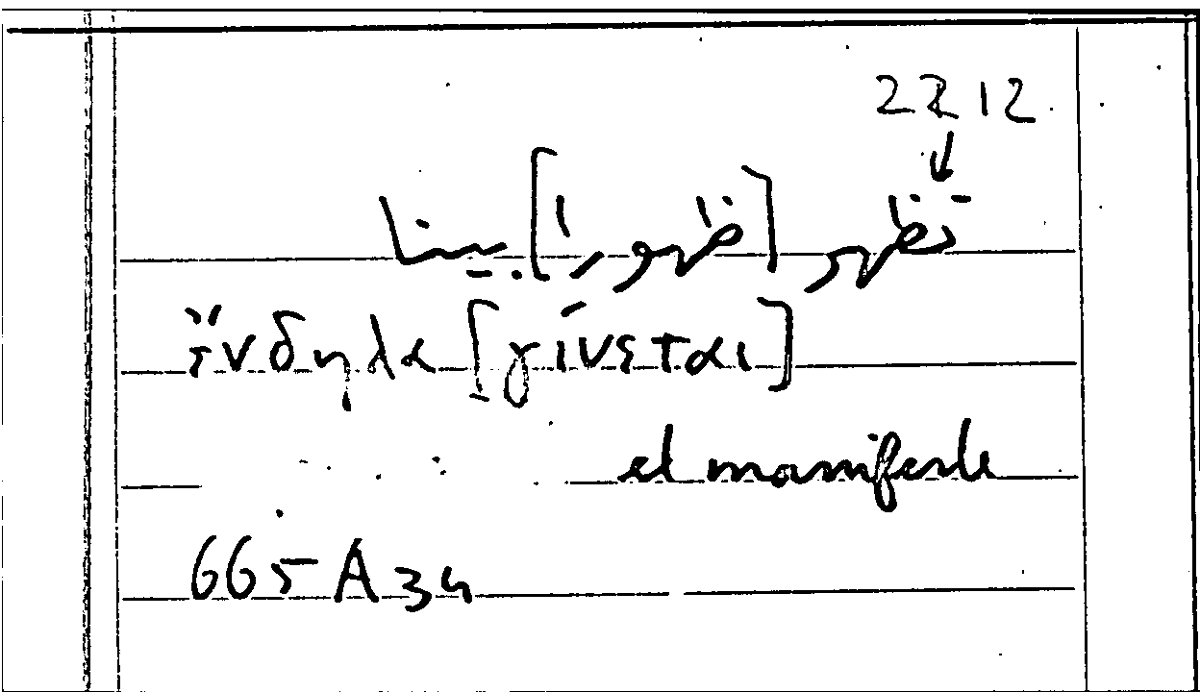 22 12
تظهر [ظهورا] بينا
ἔνδηλα [γίνεται]
et manifeste
665 A 34